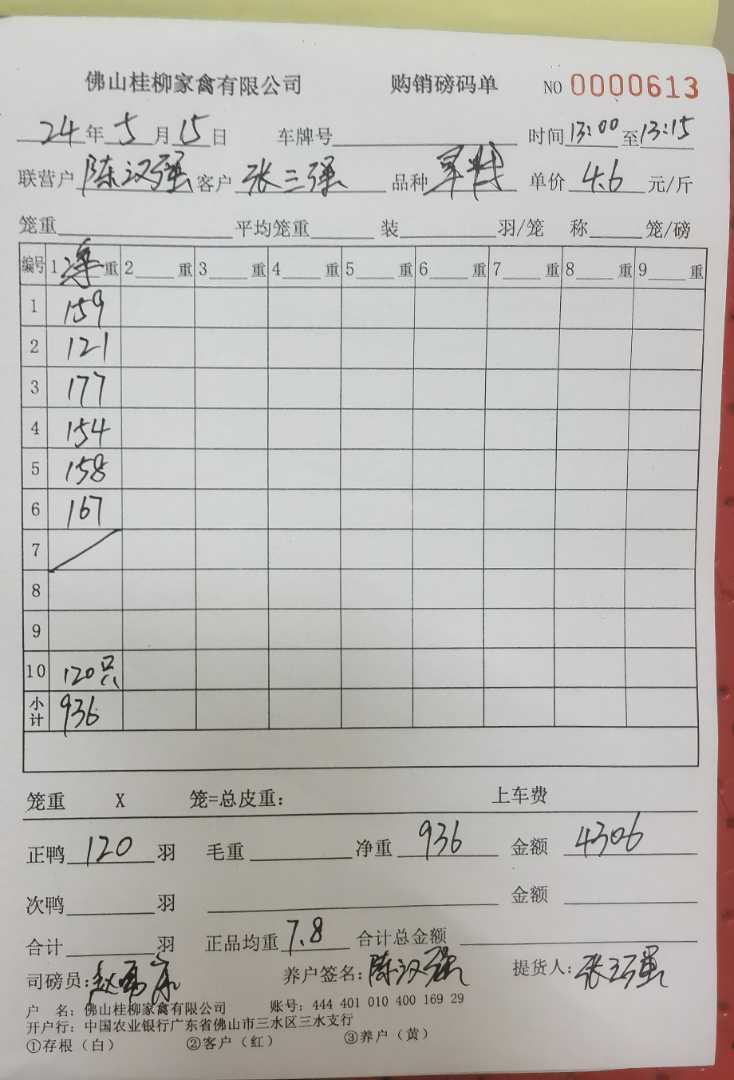 佛山桂柳家禽有限公司 购销磅码单 NO 0000613
24年5月15日 车牌号 时间13:00至13:15
联营户 陈汉强 客户 张三强 品种 单价 4.6 元/斤
笼重 平均笼重 装 羽/笼 称 笼/磅
编号 1净重 2 重 3 重 4 重 5 重 6 重 7 重 8 重 9 重
1 159
2 121
3 177
4 154
5 158
6 167
7
8
9
10 120只
小计 936
笼重 X 笼=总皮重: 上车费
正鸭 120 羽 毛重 净重 936 金额 4306
次鸭 羽 金额
合计 羽 正品均重 7.8 合计总金额
司磅员: 养户签名: 陈汉强 提货人: 张三强
户 名: 佛山桂柳家禽有限公司 账号: 444 401 010 400 169 29
开户行: 中国农业银行广东省佛山市三水区三水支行
①存根(白) ②客户(红) ③养户(黄)